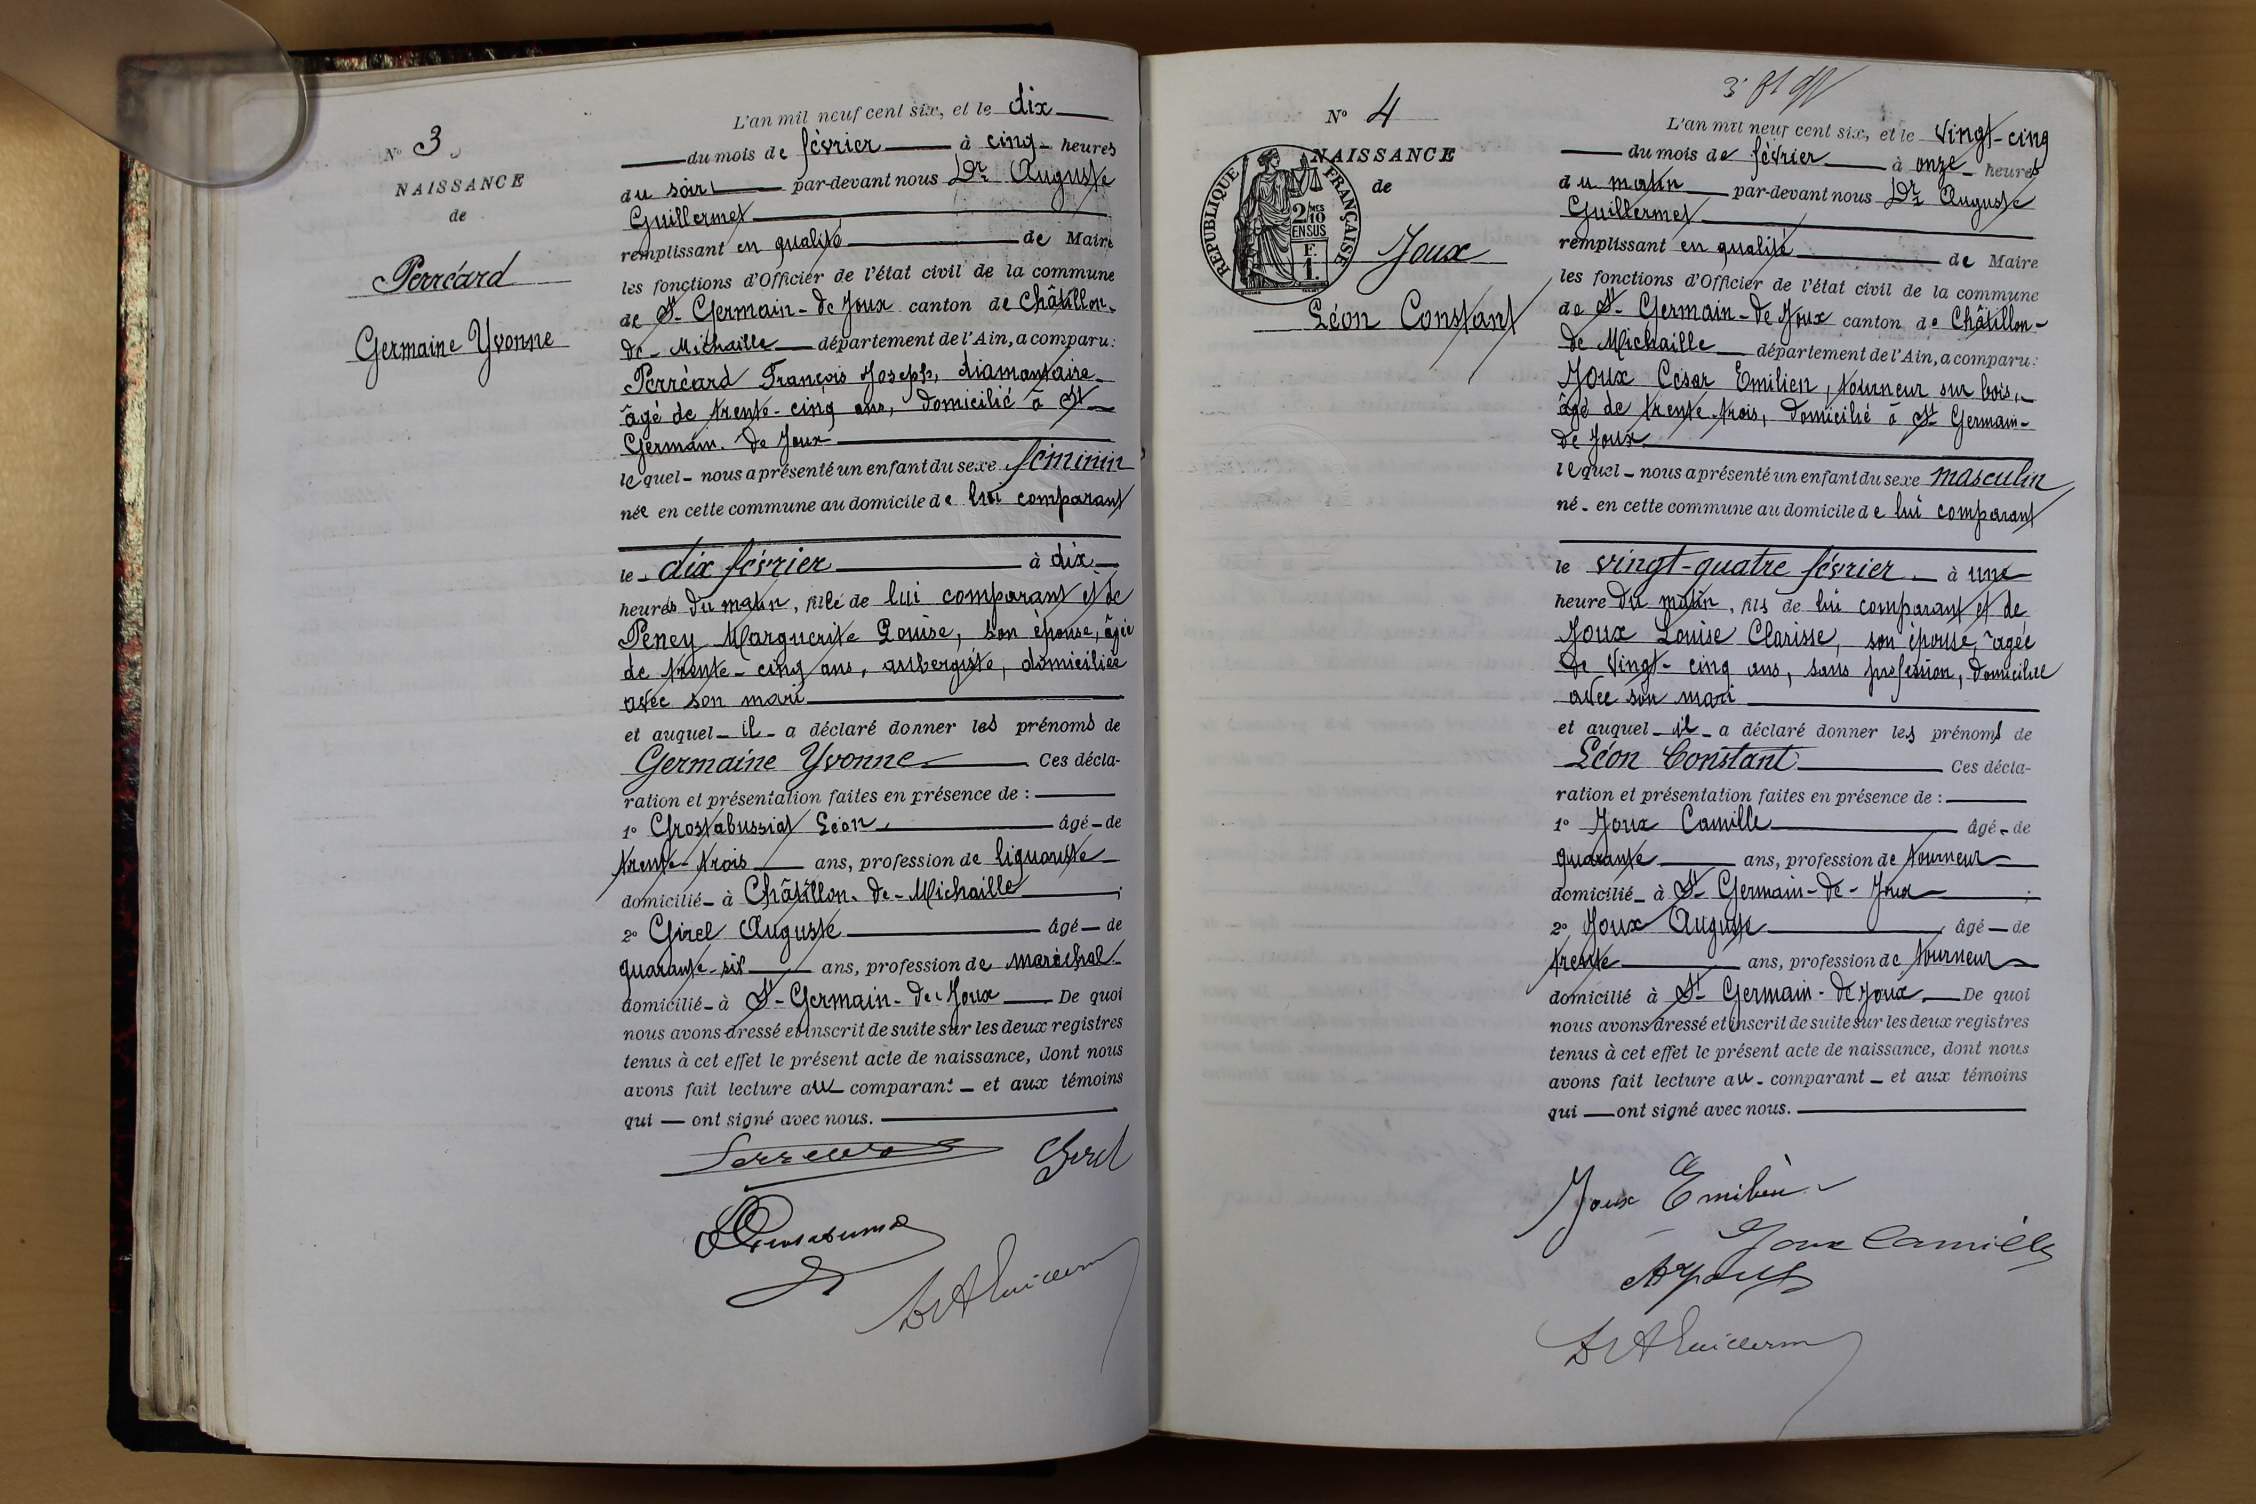 N° 3
NAISSANCE
de
Perréard
Germaine Yvonne
L'an mil neuf cent six, et le dix
du mois de février à cinq heures
du soir par-devant nous Dr Auguste
Guillermet
remplissant en qualité de Maire
les fonctions d'Officier de l'état civil de la commune
de St-Germain-de Joux canton de Châtillon-
de-Michaille département de l'Ain, a comparu:
Perréard François Joseph, diamantaire
âgé de trente-cinq ans, domicilié à St
Germain-de Joux
lequel nous a présenté un enfant du sexe féminin
née en cette commune au domicile de lui comparant
le dix février à dix
heures du matin, fille de lui comparant et de
Peney Marguerite Louise, son épouse, âgée
de trente-cinq ans, aubergiste, domiciliée
avec son mari
et auquel il a déclaré donner les prénoms de
Germaine Yvonne Ces décla-
ration et présentation faites en présence de :
1° Grostabussiat Léon âgé de
trente-trois ans, profession de liquoriste
domicilié à Châtillon-de-Michaille ;
2° Girel Auguste âgé de
quarante-six ans, profession de maréchal
domicilié à St-Germain-de-Joux De quoi
nous avons dressé et inscrit de suite sur les deux registres
tenus à cet effet le présent acte de naissance, dont nous
avons fait lecture au comparant et aux témoins
qui ont signé avec nous.
Girel
N° 4
NAISSANCE
de
RÉPUBLIQUE FRANÇAISE
2/10MES
EN SUS
F.
1.
Joux
Léon Constant
L'an mil neuf cent six, et le vingt-cinq
du mois de février à onze heures
du matin par-devant nous Dr Auguste
Guillermet
remplissant en qualité de Maire
les fonctions d'Officier de l'état civil de la commune
de St-Germain-de Joux canton de Châtillon-
de Michaille département de l'Ain, a comparu:
Joux César Emilien, tourneur sur bois,
âgé de trente-trois, domicilié à St Germain-
de Joux
lequel nous a présenté un enfant du sexe masculin
né en cette commune au domicile de lui comparant
le vingt-quatre février à une
heure du matin, fils de lui comparant et de
Joux Louise Clarisse, son épouse, âgée
de vingt-cinq ans, sans profession, domiciliée
avec son mari
et auquel il a déclaré donner les prénoms de
Léon Constant Ces décla-
ration et présentation faites en présence de :
1° Joux Camille âgé de
quarante ans, profession de tourneur
domicilié à St-Germain-de-Joux ;
2° Joux Auguste âgé de
trente ans, profession de tourneur
domicilié à St-Germain-de Joux. De quoi
nous avons dressé et inscrit de suite sur les deux registres
tenus à cet effet le présent acte de naissance, dont nous
avons fait lecture au comparant et aux témoins
qui ont signé avec nous.
Joux Emilien
Joux Camille